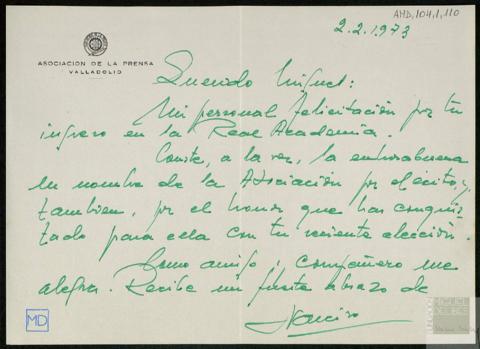 AMD,104,1,110
2.2.1973
ASOCIACION DE LA PRENSA
VALLADOLID
Querido Miguel:
Mi personal felicitación por tu
ingreso en la Real Academia.
Conste, a la vez, la enhorabuena
en nombre de la Asociación por el éxito, y
tambien, por el honor que has conquis
tado para ella con tu reciente elección.
Como amigo y compañero me
alegra. Recibe un fuerte abrazo de
Narciso
MD
FUNDACIÓN
MIGUEL
DELIBES